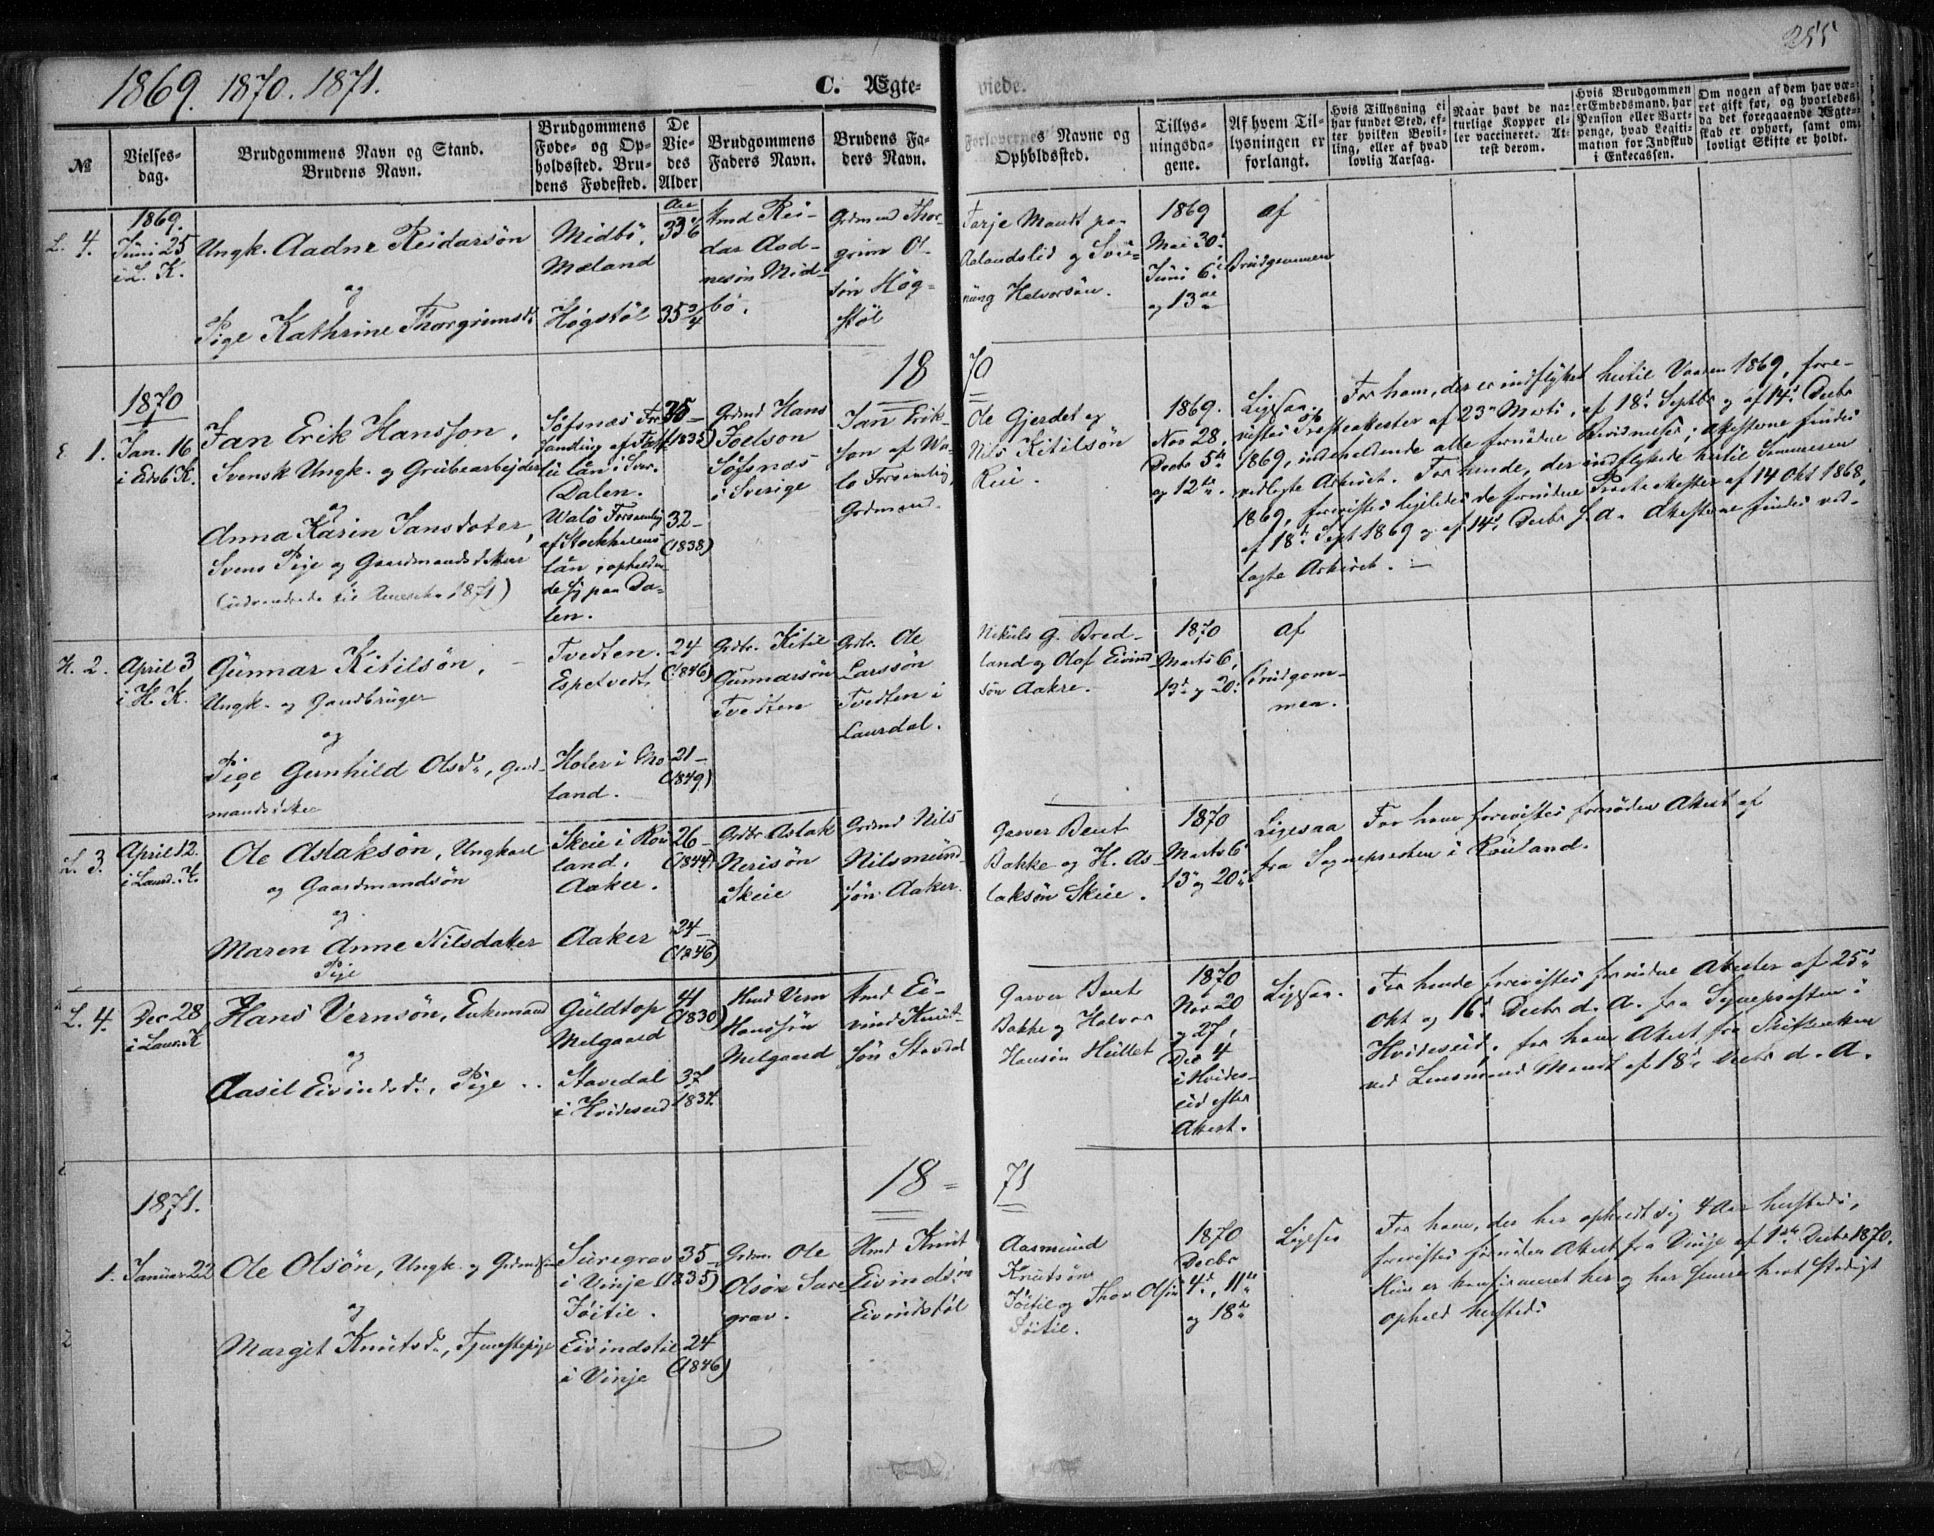 255
1869. 1870. 1871.
C. Ægte-
viede.
No
Vielses-
dag.
Brudgommens Navn og Stand.
Brudens Navn.
Brudgommens
Føde- og Op-
holdssted. Bru-
dens Fødested.
De
Vie-
des
Alder
Brudgommens
Faders Navn.
Brudens Fa-
ders Navn.
Forlovernes Navne og
Opholdssted.
Tillys-
ningsda-
gene.
Af hvem Til-
lysningen er
forlangt.
Hvis Tillysning ei
har fundet Sted, ef-
ter hvilken Bevil-
ling, eller af hvad
lovlig Aarsag.
Naar havt de na-
turlige Kopper el-
ler vaccineret. At-
test derom.
Hvis Brudgommen
er Embedsmand, har
Pension eller Vart-
penge, hvad Legiti-
mation for Indskud
i Enkecassen.
Om nogen af dem har væ-
ret gift før, og hvorledes
da det foregaaende Ægte-
skab er ophørt, samt om
lovligt Skifte er holdt.
L. 4.
1869.
Juni 25
i L. K.
Ungk. Aadne Reidarsön
og
Pige Kathrine Thorgrimsd.
Midbö,
Mæland
Högstöl
35 3/4
Reidar Aad-
nesön Mid-
bö.
Grdmnd Thor-
grim Ol-
sön Hög-
stöl
Tarje Mandt paa
Aalandslid og Svei-
nung Halvorsön.
1869
Mai 30.
Juni 6.
og 13
af
Brudgommen
1870
E. 1.
1870
Jan. 16
i Eidsb. K.
Jan Erik Hansson,
Svensk Ungk. og Grubearbejder
og
Anna Karin Jansdoter,
Svensk Pige og Gaardmandsdatter
(udvandrede til Amerika 1871)
Söfsnäs
län i Sver.
Dalen.
Walö Forsamling
af Stockholms
län, opholden-
de sig paa Da-
len.
35
(1835)
32
(1838)
Grdmd Hans
Joelson
Söfsnäs
i Sverige
Jan Erik-
son af Wa-
lo Forsamling,
Grdmand.
Ole Gjerdet og
Nils Kitilsön
Rui.
1869.
Nov 28,
Decbr 5te
og 12te.
Ligesaa.
For ham, der er indflyttet hertil Vaaren 1869, fore-
vistes Præsteattester af 23 Marts, af 18d Septbr og af 14d Decbr
1869, indeholdende alle fornödne Bevidnelser; Attesterne findes
vedlagte Arkivet. For hende, der indflyttede hertil Sommeren
1869, forevistes ligeledes de fornödne Præsteattester af 14 Okt 1868,
af 18d Sept 1869 og af 14d Decbr s. A. Attesterne findes ved-
lagte Arkivet.
H. 2.
April 3
i H. K.
Gunnar Kitilsön,
Ungk. og Gaardbruger
og
Pige Gunhild Olsd., Gard-
mandsdatter
Tvedten.
Espetvedt
Holer i Mo
land.
24
(1846)
21
(1849)
Grdbr. Kitil
Gunnarsön
Tvedten
Grdbr. Ole
Larssön
Tvedten i
Laurdal.
Nikuls G. Bred-
land og Olaf Eivind-
sön Aakre.
1870
Marts 6,
13d og 20.
af
Brudgom-
men.
L. 3.
April 12.
i Laurd. K.
Ole Aslaksön, Ungkarl
og Gaardmandsön
og
Maren Anne Nilsdatter
Pige
Skeie i Rau
land.
Aaker.
Aaker
26
(1844)
24
(1846)
Grdbr Aslak
Nerisön
Skeie
Grdmd Nils
Nilsmund-
sön Aaker.
Garver Bent
Bakke og H. As-
laksön Skeie.
1870
Marts 6
13 og 20
Ligesaa
For ham forevistes fornöden Attest af
fra Sognepræsten i Rauland.
L. 4.
Dec 28
i Laur. K
Hans Vernsön, Enkemand
og
Aasil Eivindsd., Pige
Guldtop
Melgaard
Stavedal
i Hvideseid
41
(1830)
37
1834.
Hmd Vern
Hanssön
Melgaard
Hmd Ei-
vind Knut-
sön Stavdal
Garver Bent
Bakke og Halvor
Hansön Hullet
1870
Nov 20
og 27,
Dec 4
i Hvides-
eid efter
Attest.
Ligesaa.
For hende forevistes fornödne Attester af 25d
Okt og 16d Decbr d. A. fra Sognepræsten i
Hvideseid, for ham Attest fra Skifteretten
ved Lensmand Mandt af 18d Decbr d. A.
1871
1.
1871.
Januar 22
Ole Olsön, Ungk. og Grdmdsön
og
Margit Knutsd., Tjenestepige
Suregrav
i Vinje
Föitil.
Eivindstöl
i Vinje
35
(1835)
24
(1846)
Grdm. Ole
Olsön Sure
grav.
Hmd Knut
Eivindsön
Eivindstöl
Aasmund
Knutsön
Föitil og Thor Olsön
Föitil.
1870
Decbr
4d, 11te
og 18d
Ligesaa
For ham, der har opholdt sig 4 Aar hersteds,
forevistes fornöden Attest fra Vinje af 1ste Decbr 1870.
Hun er konfirmeret her og har senere havt stadigt
ophold hersteds